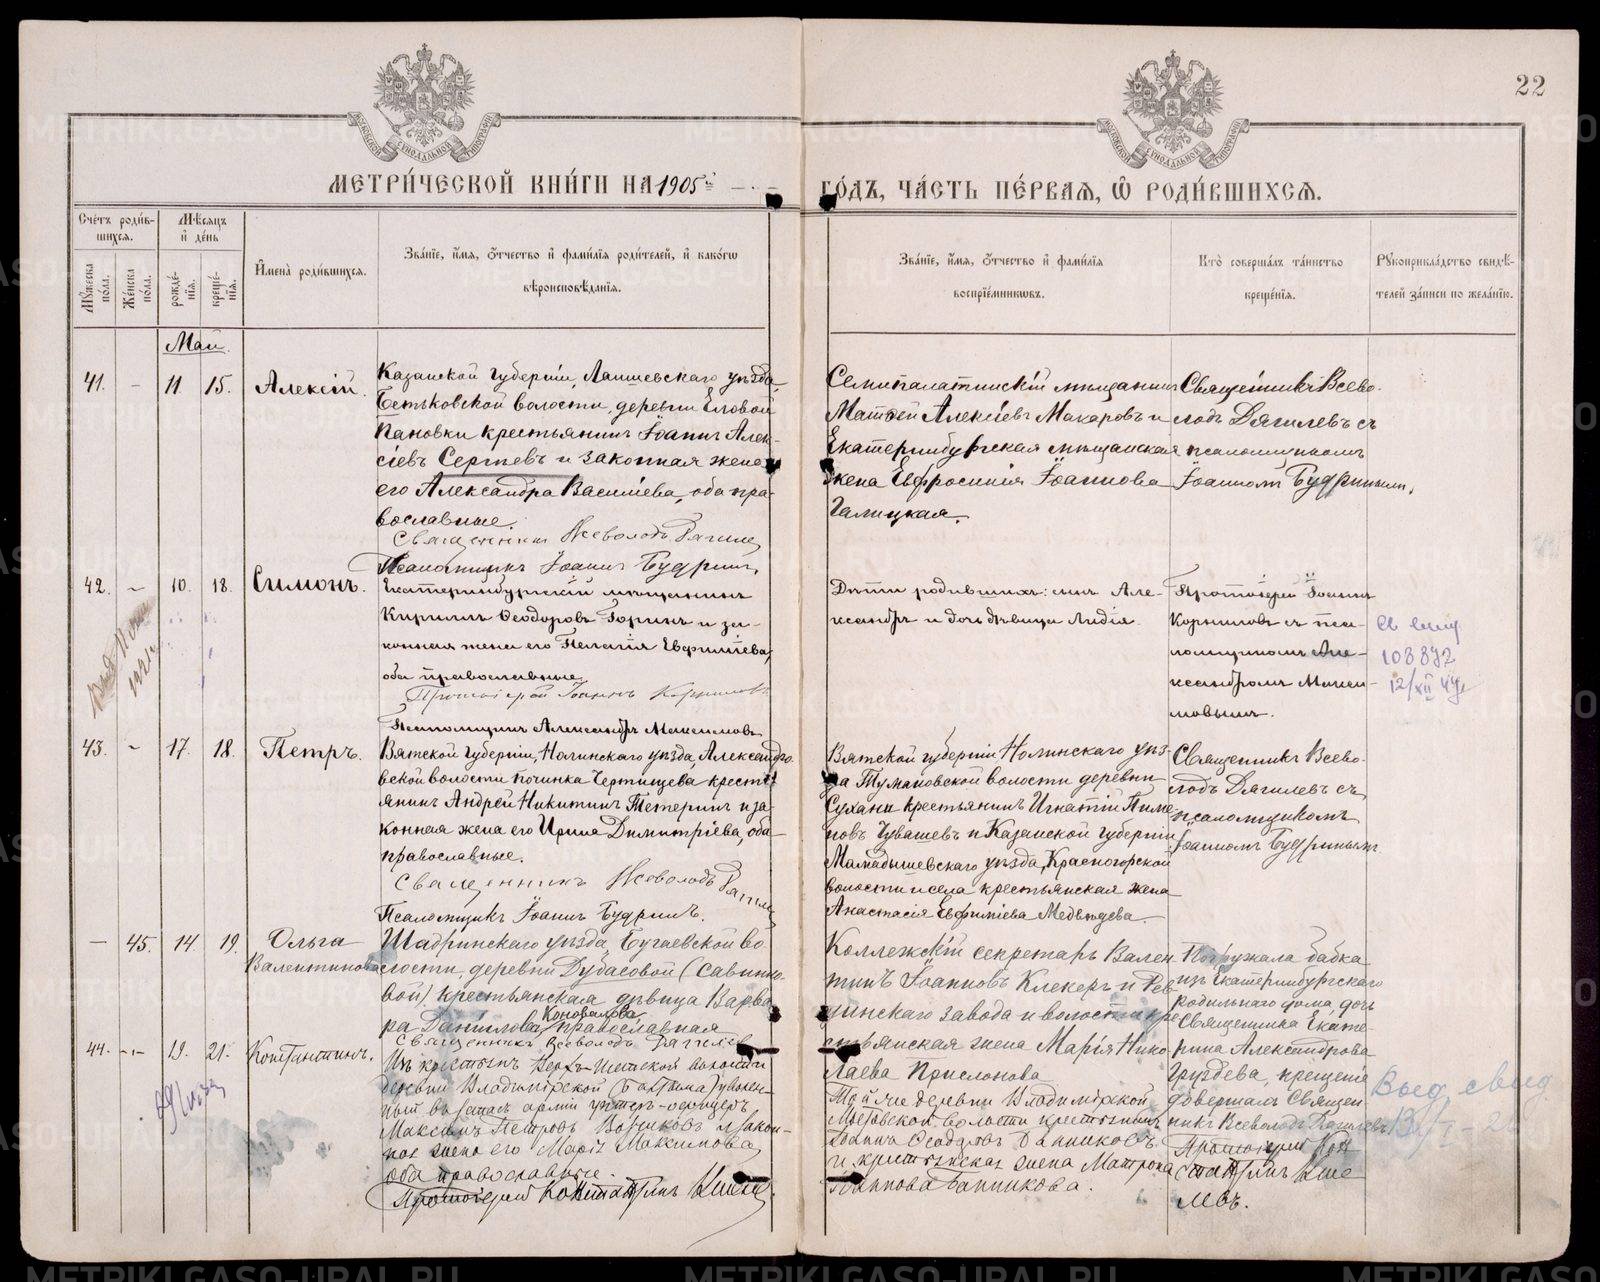 22
МЕТРИ́ЧЕСКОЙ КНИ́ГИ НА 1905й ГО́ДЪ, ЧА́СТЬ ПЕ́РВАЯ, Ѽ РОДИ́ВШИХСЯ.
Сче́тъ роди́в-
шихся.
Му́жеска
по́ла.
Же́нска
по́ла.
Мѣ́сяцъ
и҆ де́нь
рожде́-
нїя.
креще́-
нїя.
И҆мена̀ роди́вшихся.
Зва́нїе, и҆́мя, ѻ҆́тчество и҆ фами́лїя роди́телей, и҆ како́гѡ
вѣроисповѣ́данїя.
Зва́нїе, и҆́мя, ѻ҆́тчество и҆ фами́лїя
воспрїе́мникѡвъ.
Кто̀ соверша́лъ та́инство
креще́нїя.
Рꙋкоприкла́дство свидѣ́-
телей за́писи по жела́нїю.
Май.
41.
-
11
15.
Алексій.
Казанской губерніи, Лаишевскаго уѣзда,
Бетьковской волости, деревни Еловой
Пановки крестьянинъ Іоаннъ Алек-
сіевъ Сергѣевъ и законная жена
его Александра Васильева, оба пра-
вославные.
Священникъ Всеволодъ Дягилевъ
Псаломщикъ Іоаннъ Будринъ.
Семипалатинскій мѣщанинъ
Матѳей Алексіевъ Макаровъ и
Екатеринбургская мѣщанская
жена Евфросинія Іоаннова
Галицкая.
Священникъ Всево-
лодъ Дягилевъ съ
псаломщикомъ
Іоанномъ Будринымъ.
42.
-
10.
18.
Симонъ.
Екатеринбургскій мѣщанинъ
Кириллъ Ѳеодоровъ Горинъ и за-
конная жена его Пелагія Евфиміева,
оба православные
Протоіерей Іоаннъ Корниловъ
Псаломщикъ Александръ Максимовъ
Дѣти родившихъ: сынъ Але-
ксандръ и дочь дѣвица Лидія.
Протоіерей Іоаннъ
Корниловъ съ пса-
ломщикомъ Але-
ксандромъ Макси-
мовымъ.
108892
12/XII
43.
-
17.
18.
Петръ.
Вятской губерніи, Нолинскаго уѣзда, Александро-
вской волости починка Чертищева кресть-
янинъ Андрей Никитинъ Тетеринъ и за-
конная жена его Ирина Димитріева, оба
православные.
Священникъ Всеволодъ Дягилевъ
Псаломщикъ Іоаннъ Будринъ.
Вятской губерніи Нолинскаго уѣз-
да Тумановской волости деревни
Сухани крестьянинъ Игнатій Пиме-
новъ Чувашевъ и Казанской губерніи
Мамадышевскаго уѣзда, Красногорской
волости и села крестьянская жена
Анастасія Евфиміева Медвѣдева.
Священникъ Всево-
лодъ Дягилевъ съ
псаломщикомъ
Іоанномъ Будринымъ.
-
45.
14
19.
Ольга
Валентинова
Шадринскаго уѣзда, Бугаевской во-
лости, деревни Дубасовой (Савино-
вой) крестьянская дѣвица Варва-
ра Даніилова Коновалова, православная
Священникъ Всеволодъ Дягилев
Коллежскій секретарь Вален-
тинъ Іоанновъ Клекеръ и Рев-
динскаго завода и волости кре-
стьянская жена Марія Нико-
лаева Прислонова
Погружала бабка
изъ Екатеринбургскаго
родильнаго дома, дочь
священника Екате-
рина Александрова
Груздева, крещеніе
довершалъ Священ-
никъ Всеволодъ Дягилевъ
44.
19.
21.
Константинъ.
деревни Владимірской
ный въ запасъ арміи унтеръ-офицеръ
Максимъ Петровъ
ная жена его Марія Максимова
оба православные.
Протоіерей Константинъ
Той же деревни Владимірской
волости крестьянинъ
Іоаннъ Ѳеодоровъ Банниковъ
и крестьянская жена Матрона
Іоаннова Банникова.
Протоіерей Кон-
стантинъ
Выд. свид